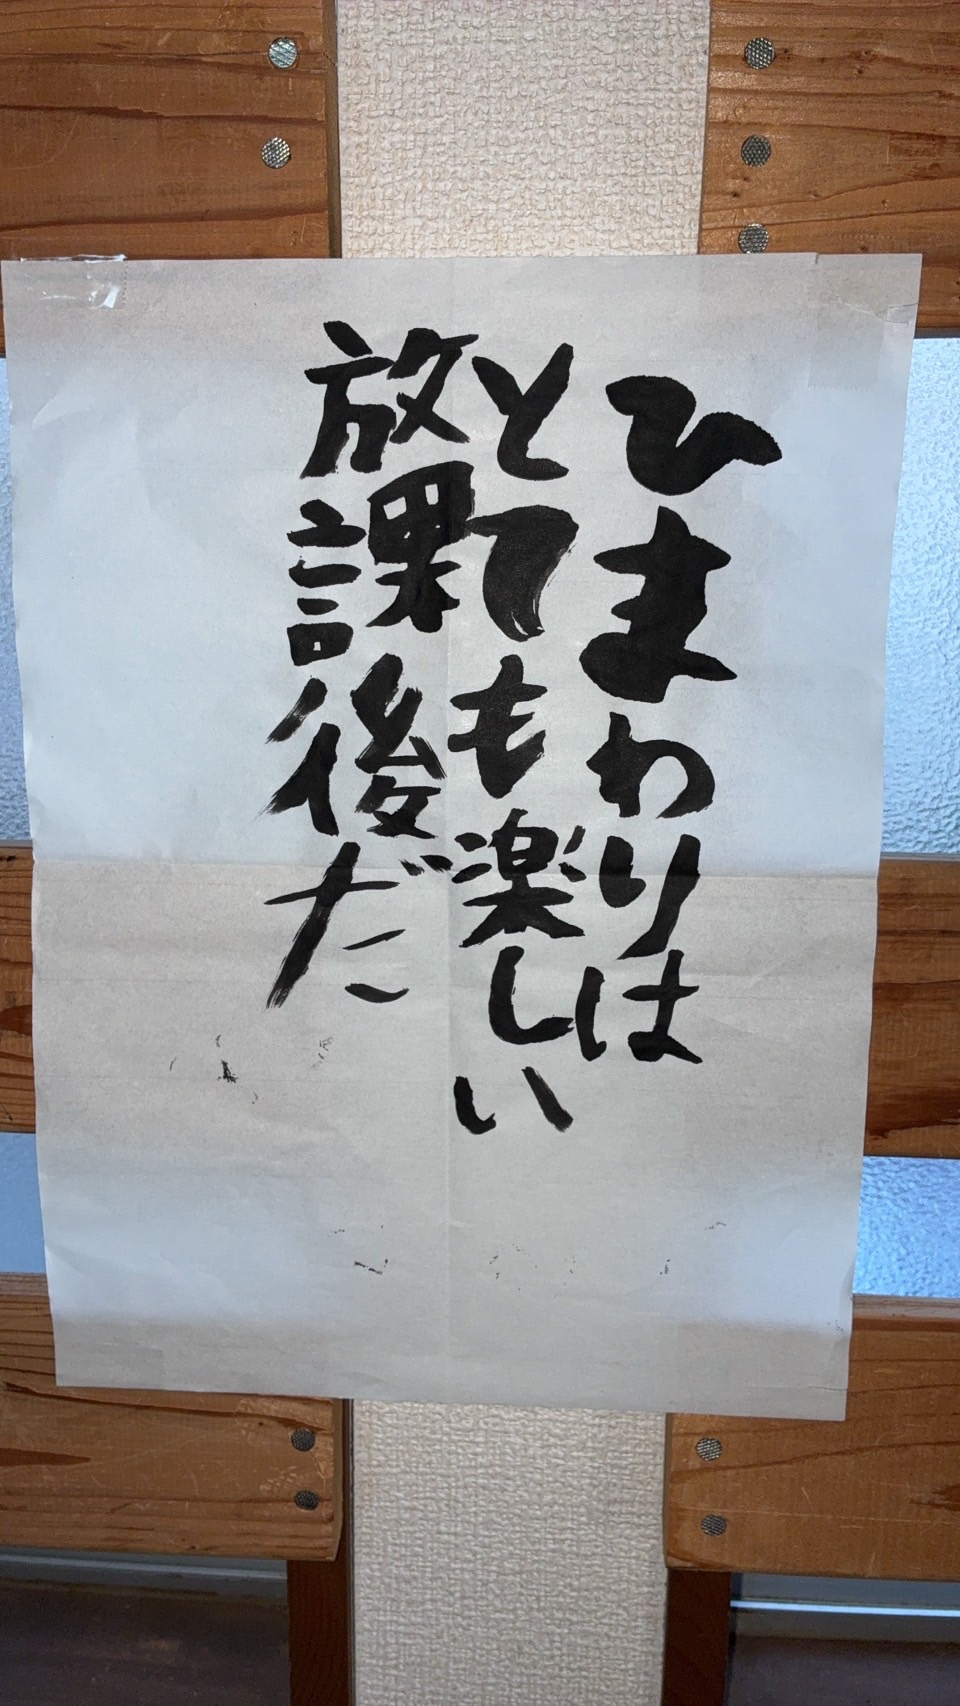 ひまわりは
とても楽しい
放課後だ